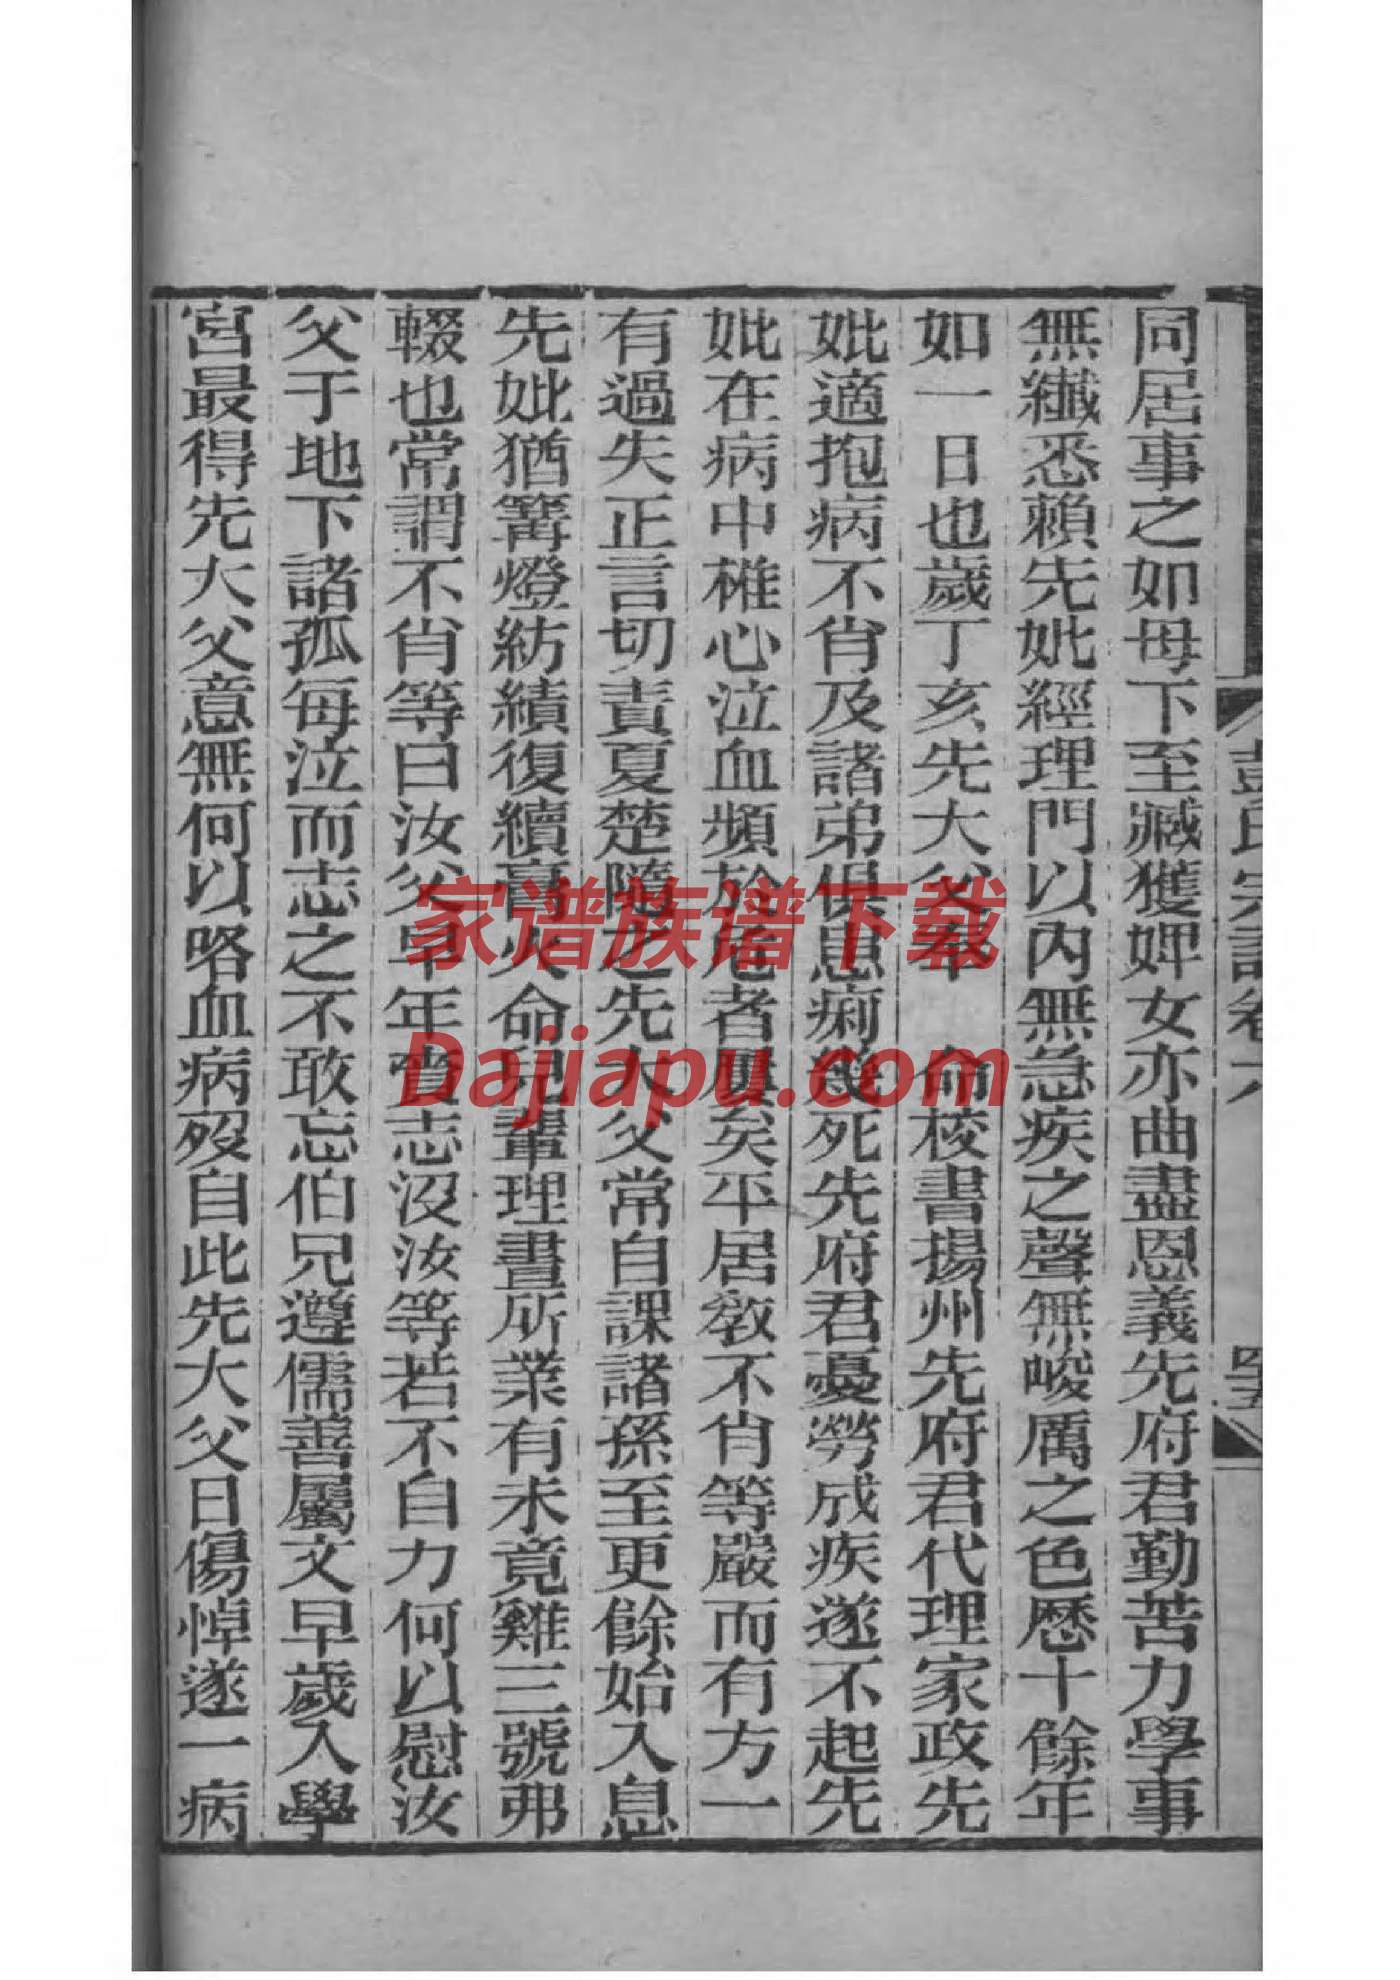 彭氏宗譜卷六
同居事之如母下至臧獲婢女亦曲盡恩義先府君勤苦力學事
無纎悉賴先妣經理門以內無急疾之聲無峻厲之色歷十餘年
如一日也歲丁亥先大父奉 命校書揚州先府君代理家政先
妣適抱病不肖及諸弟俱患痢幾死先府君憂勞成疾遂不起先
妣在病中椎心泣血頻於危者屢矣平居教不肖等嚴而有方一
有過失正言切責夏楚隨之先大父常自課諸孫至更餘始入息
先妣猶篝燈紡績復續膏火命兒輩理晝所業有未竟雞三號弗
輟也常謂不肖等曰汝父早年齎志沒汝等若不自力何以慰汝
父于地下諸孤每泣而志之不敢忘伯兄遵儒善屬文早歲入學
宮最得先大父意無何以咯血病歿自此先大父日傷悼遂一病
家谱族谱下载
Dajiapu.com